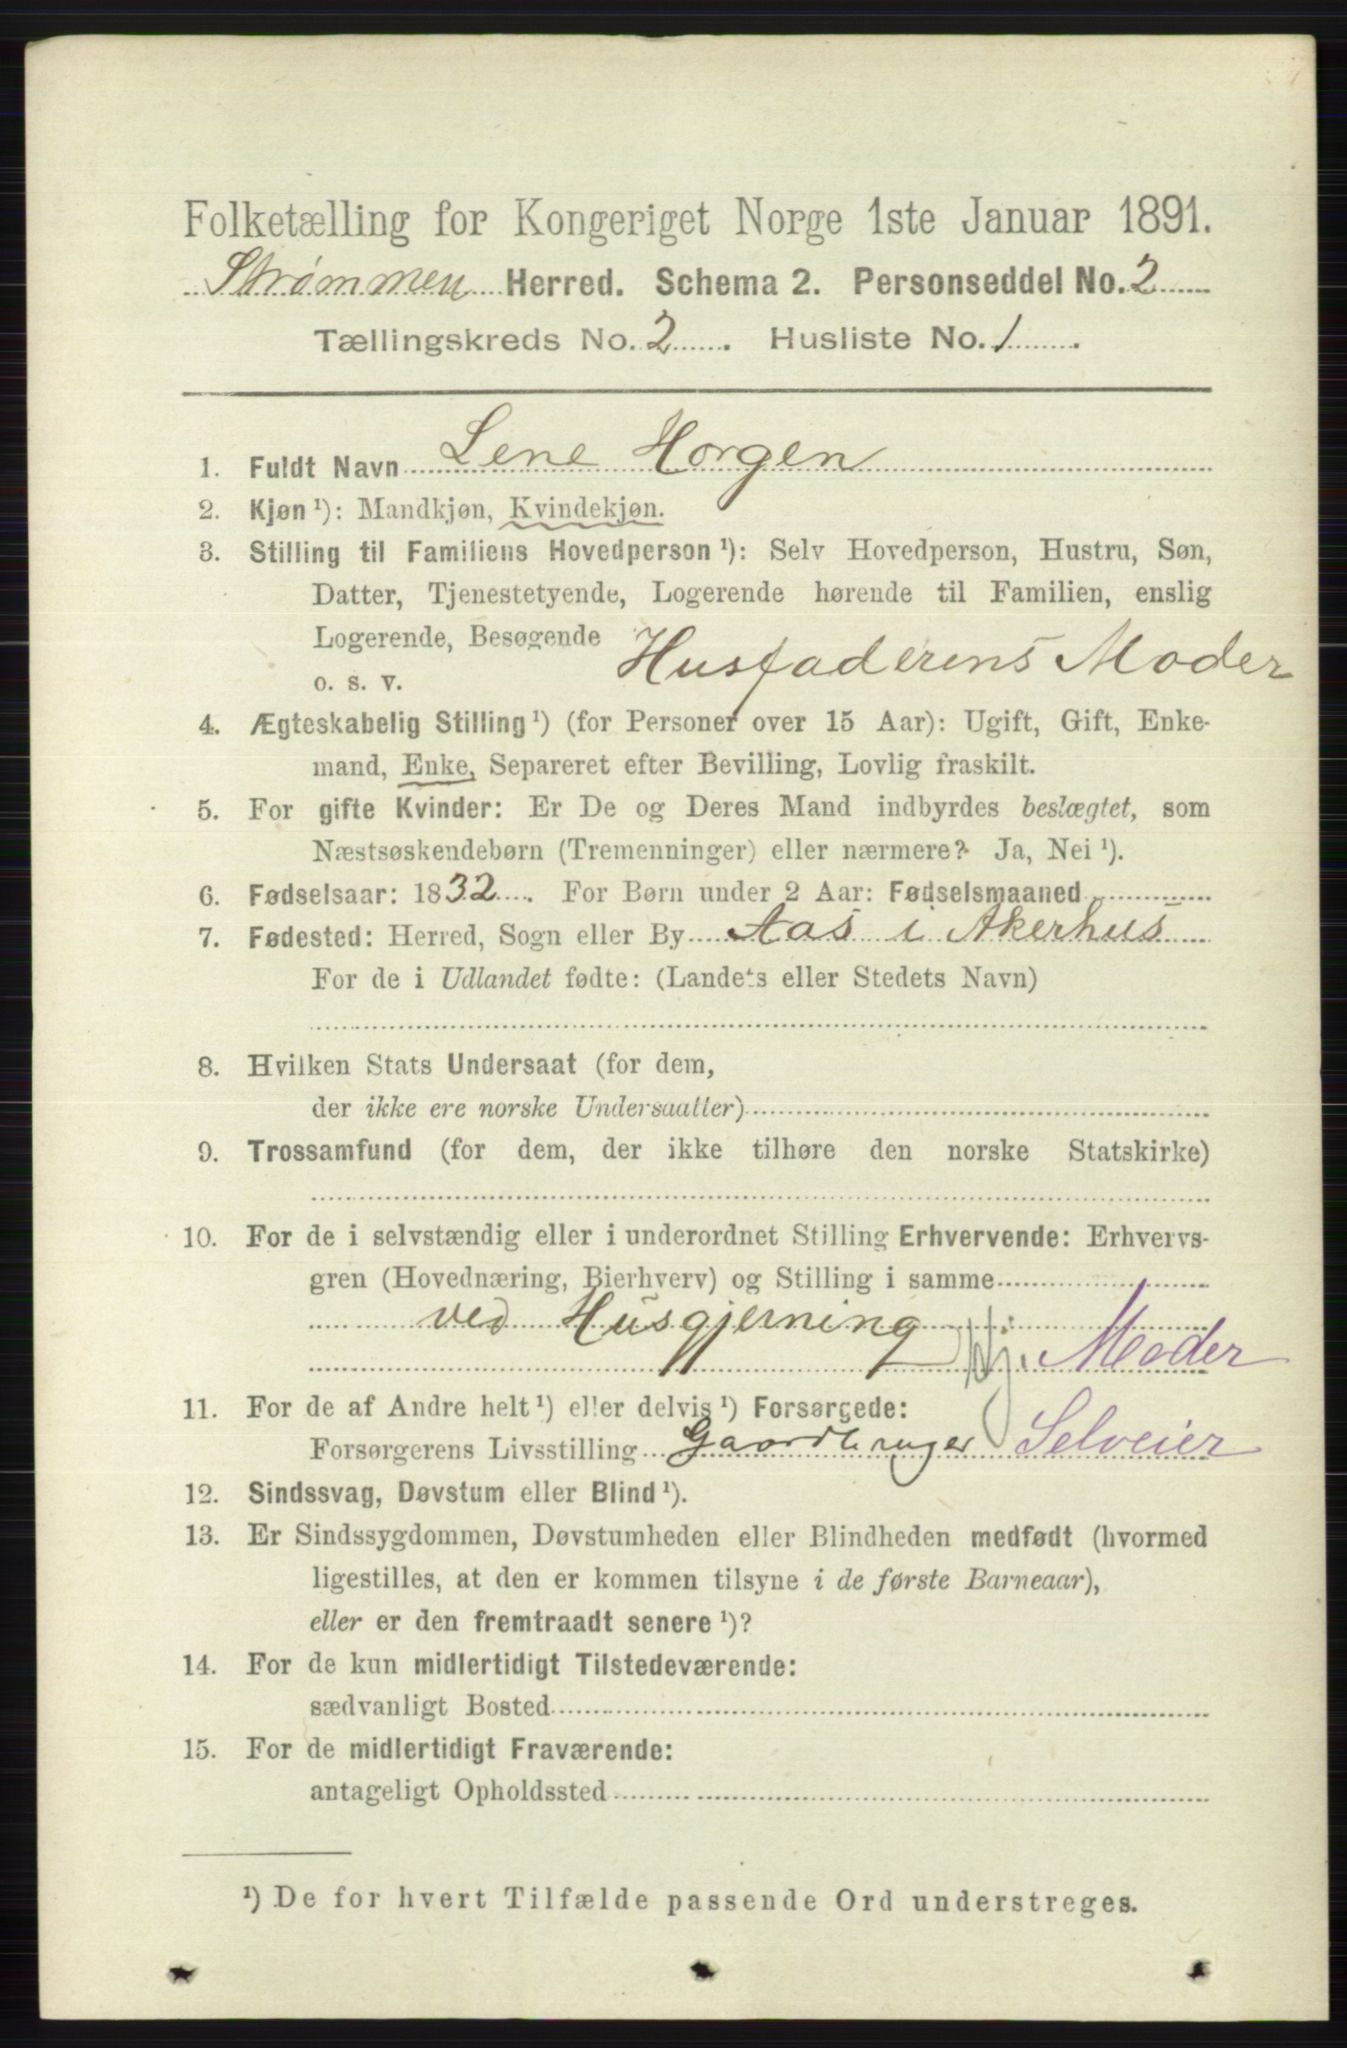 Folketælling for Kongeriget Norge 1ste Januar 1891.
Strømmen Herred. Schema 2. Personseddel No. 2
Tællingskreds No. 2. Husliste No. 1.
1. Fuldt Navn Lene Horgen
2. Kjøn ¹): Mandkjøn, Kvindekjøn.
3. Stilling til Familiens Hovedperson ¹): Selv Hovedperson, Hustru, Søn,
Datter, Tjenestetyende, Logerende hørende til Familien, enslig
Logerende, Besøgende
o. s. v. Husfaderens Moder
4. Ægteskabelig Stilling ¹) (for Personer over 15 Aar): Ugift, Gift, Enke-
mand, Enke, Separeret efter Bevilling, Lovlig fraskilt.
5. For gifte Kvinder: Er De og Deres Mand indbyrdes beslægtet, som
Næstsøskendebørn (Tremenninger) eller nærmere? Ja, Nei ¹).
6. Fødselsaar: 1832. For Børn under 2 Aar: Fødselsmaaned
7. Fødested: Herred, Sogn eller By Aas i Akerhus
For de i Udlandet fødte: (Landets eller Stedets Navn)
8. Hvilken Stats Undersaat (for dem,
der ikke ere norske Undersaatter)
9. Trossamfund (for dem, der ikke tilhøre den norske Statskirke)
10. For de i selvstændig eller i underordnet Stilling Erhvervende: Erhvervs-
gren (Hovednæring, Bierhverv) og Stilling i samme
ved Husgjerning
hj. Moder
11. For de af Andre helt ¹) eller delvis ¹) Forsørgede:
Forsørgerens Livsstilling Gaardbruger Selveier
12. Sindssvag, Døvstum eller Blind ¹).
13. Er Sindssygdommen, Døvstumheden eller Blindheden medfødt (hvormed
ligestilles, at den er kommen tilsyne i de første Barneaar),
eller er den fremtraadt senere ¹)?
14. For de kun midlertidigt Tilstedeværende:
sædvanligt Bosted
15. For de midlertidigt Fraværende:
antageligt Opholdssted
¹) De for hvert Tilfælde passende Ord understreges.